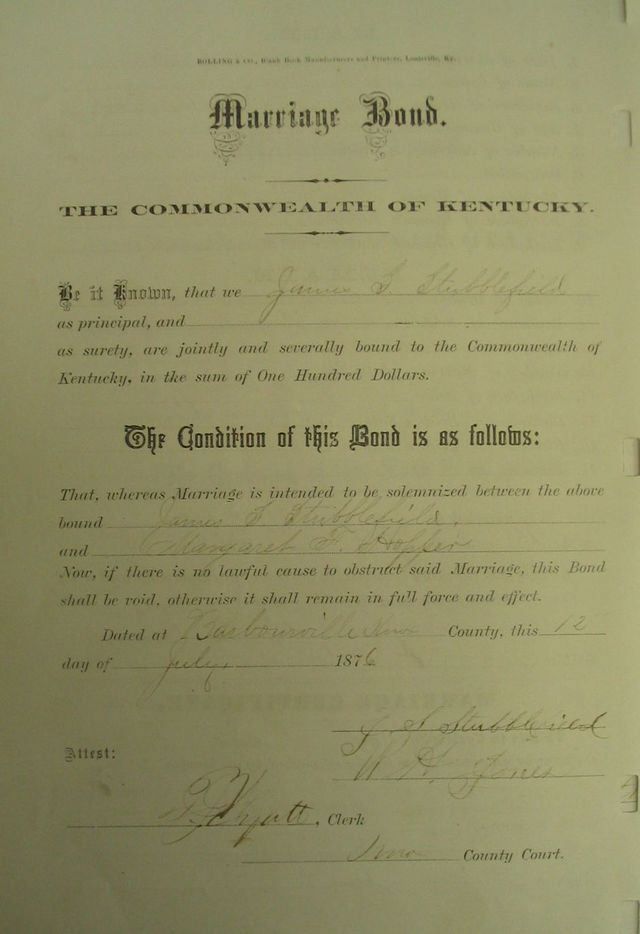 BOLLING & CO., Blank Book Manufacturers and Printers, Louisville, Ky.
Marriage Bond.
THE COMMONWEALTH OF KENTUCKY.
Be it Known, that we James S. Stubblefield
as principal, and
as surety, are jointly and severally bound to the Commonwealth of
Kentucky, in the sum of One Hundred Dollars.
The Condition of this Bond is as follows:
That, whereas Marriage is intended to be solemnized between the above
bound James S Stubblefield.
and Margaret F. Hopper
Now, if there is no lawful cause to obstruct said Marriage, this Bond
shall be void, otherwise it shall remain in full force and effect.
Dated at Barbourville Knox County, this 12
day of July 1876
J S Stubblefield
Attest:
W. H. Jones
Wyatt, Clerk
Knox County Court.